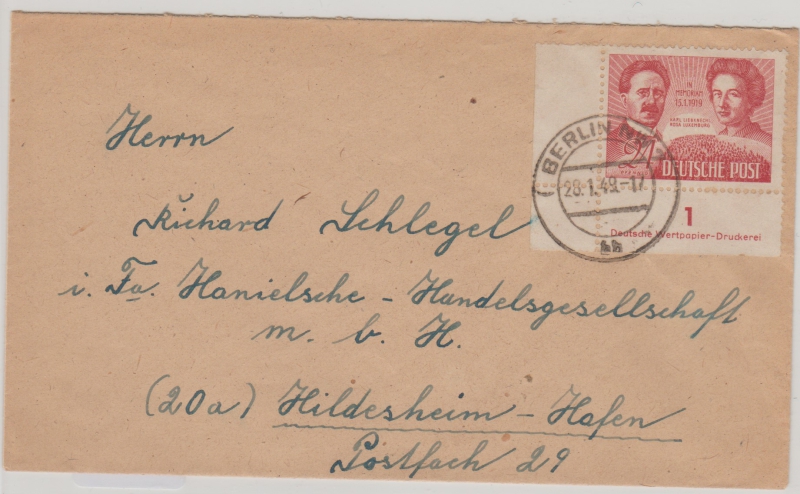 IN
MEMORIAM
15.1.1919
KARL LIEBKNECHT
ROSA LUXEMBURG
24
PFENNIG
DEUTSCHE POST
BERLIN
28.1.49.-17
1
Deutsche Wertpapier-Druckerei
Herrn
Richard Schlegel
i. Fa. Hanielsche - Handelsgesellschaft
m. b. H.
(20a) Hildesheim - Hafen
Postfach 29